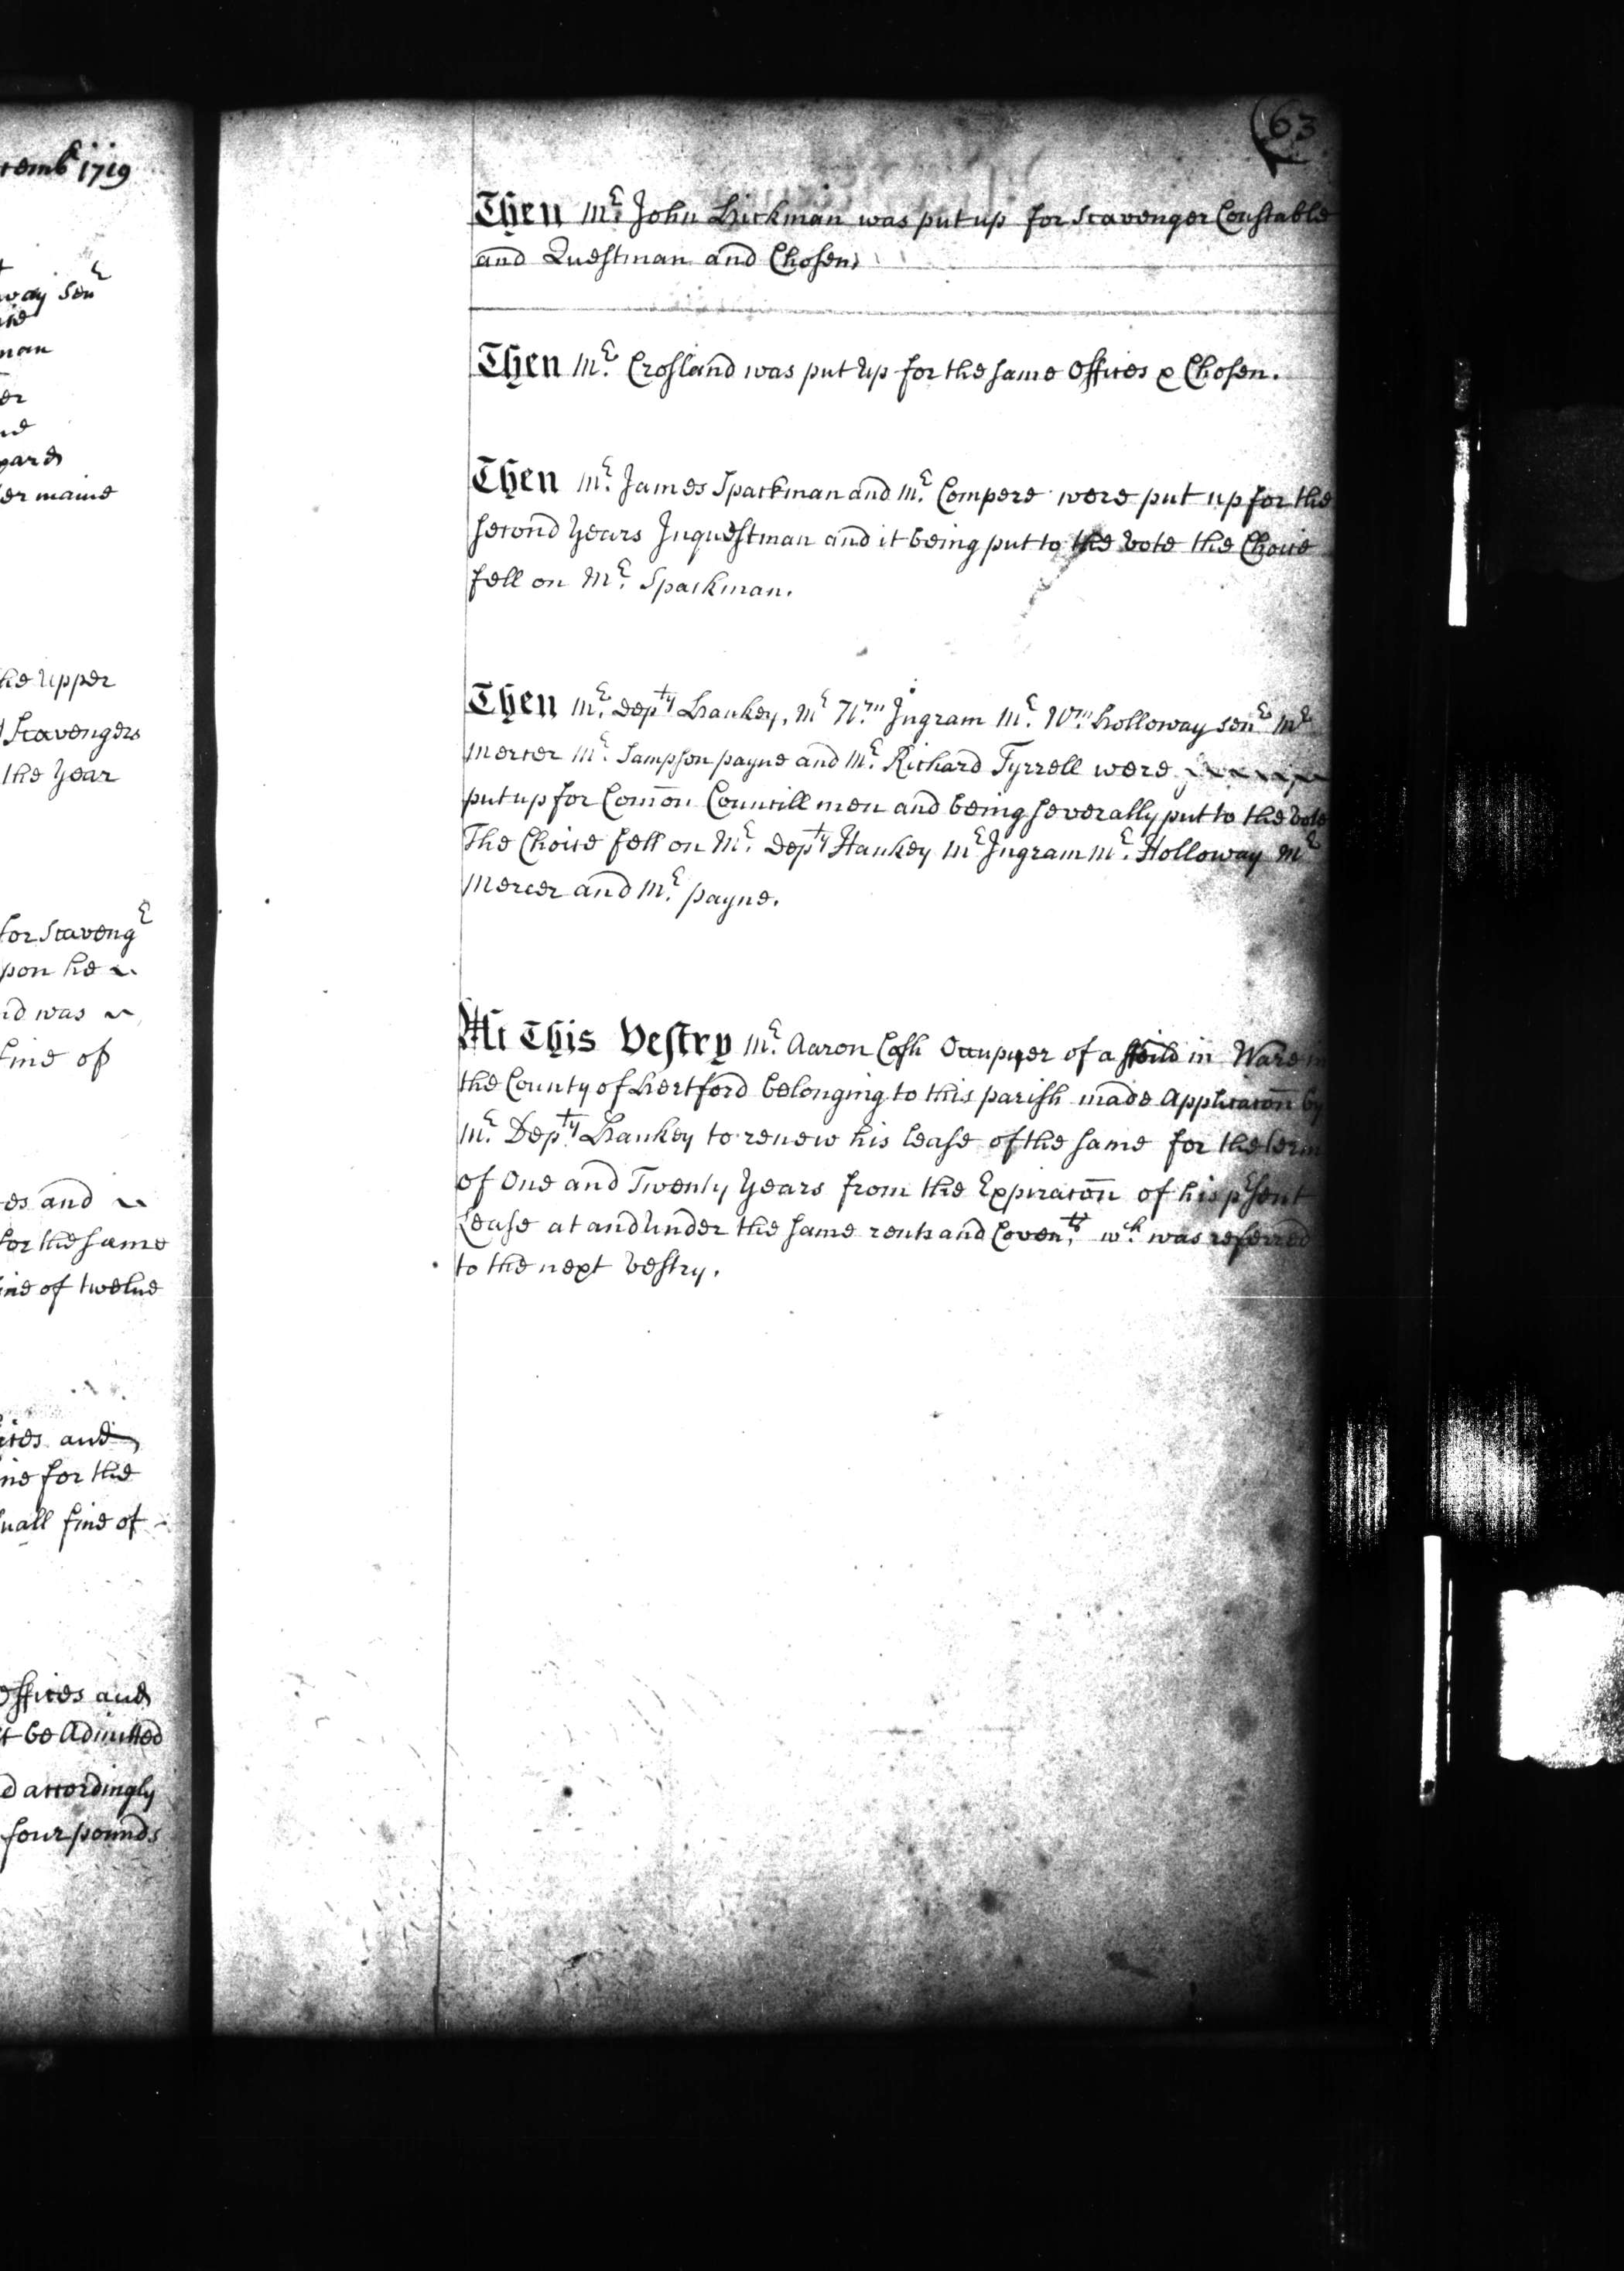 temb.r 1719
way Sen.r
man
er
gard
ermaine
he Upper
Scavengers
the Year
for Scaveng.r
pon he
nd was
fine of
es and
for the same
ine of twelve
ices and
ine for the
uall fine of
Offices and
t be Admitted
d accordingly
four pounds
63
Then M.r John Hickman was put up for Scavenger Constable
and Questman and Chosen.
Then M.r Crosland was put Up for the same Offices & Chosen.
Then M.r James Spackman and M.r Compere were put up for the
second Years Inquestman and it being put to the Vote the Choice
fell on M.r Spackman.
Then M.r Dep.ty Hankey, M.r W.m Ingram M.r W.m Holloway sen.r M.r
Mercer M.r Sampson payne and M.r Richard Tyrrell were
put up for Com̄on Councill men and being severally put to the Vote
The Choice fell on M.r Dep.ty Hankey M.r Ingram M.r Holloway M.r
Mercer and M.r payne.
At This Vestry M.r Aaron Cash Occupyer of a ffeild in Ware in
the County of Hertford belonging to this parish made Applicac͠on by
M.r Dep.ty Hankey to renew his lease of the same for the term
of One and Twenty Years from the Expirac͠on of his p.rsent
Lease at and Under the same rents and Coven.ts w.ch was referred
to the next Vestry.